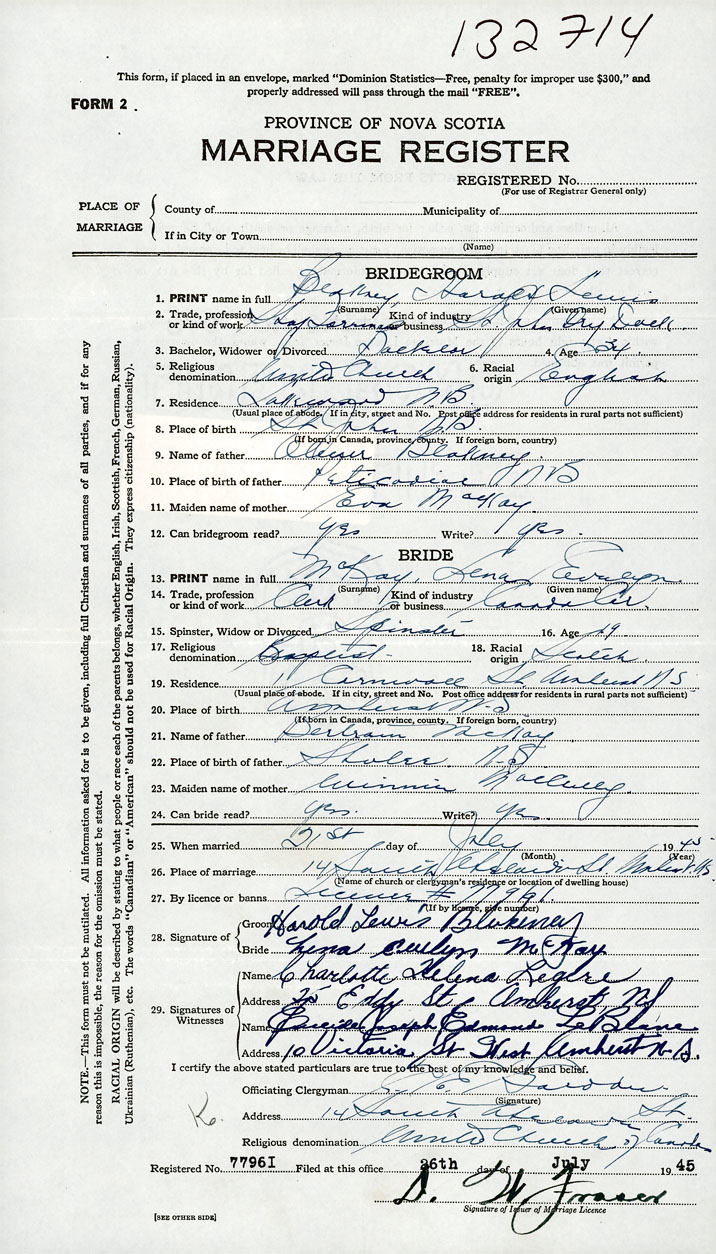 132714
This form, if placed in an envelope, marked "Dominion Statistics—Free, penalty for improper use $300," and
properly addressed will pass through the mail "FREE".
FORM 2
PROVINCE OF NOVA SCOTIA
MARRIAGE REGISTER
REGISTERED No.
(For use of Registrar General only)
PLACE OF MARRIAGE
County of Municipality of
If in City or Town
(Name)
BRIDEGROOM
1. PRINT name in full Blakney Harold Lewis
(Surname) (Given name)
2. Trade, profession or kind of work Kind of industry or business St. John Dry Dock
3. Bachelor, Widower or Divorced Bachelor 4. Age 24
5. Religious denomination United Church 6. Racial origin English
7. Residence Lakewood N.B.
(Usual place of abode. If in city, street and No. Post office address for residents in rural parts not sufficient)
8. Place of birth St. John N.B.
(If born in Canada, province, county. If foreign born, country)
9. Name of father Blakney
10. Place of birth of father Peticodiac NB
11. Maiden name of mother Eva MacKay
12. Can bridegroom read? yes Write? yes.
BRIDE
13. PRINT name in full McKay, Lena Evelyn
(Surname) (Given name)
14. Trade, profession or kind of work Clerk Kind of industry or business Canada Car
15. Spinster, Widow or Divorced Spinster 16. Age 19
17. Religious denomination Baptist 18. Racial origin Scotch
19. Residence Cornwall St. Amherst N.S
(Usual place of abode. If in city, street and No. Post office address for residents in rural parts not sufficient)
20. Place of birth Amherst N.S
(If born in Canada, province, county. If foreign born, country)
21. Name of father Bertram McKay
22. Place of birth of father Shulee N.S
23. Maiden name of mother Minnie
24. Can bride read? yes. Write? yes.
25. When married 21st day of July 1945
(Month) (Year)
26. Place of marriage 14 South St Amherst N.S
(Name of church or clergyman's residence or location of dwelling house)
27. By licence or banns
(If by licence, give number)
28. Signature of
Groom Harold Lewis Blakeney
Bride Lena Evelyn McKay
29. Signatures of Witnesses
Name Charlotte Helena Legere
Address 25 Eddy St. Amherst, NS
Name Joseph Edmond LeBlanc
Address 10 Victoria St West Amherst N.S.
I certify the above stated particulars are true to the best of my knowledge and belief.
Officiating Clergyman
(Signature)
Address 14 South St.
Religious denomination United Church of Canada
Registered No. 7796I Filed at this office 26th day of July 1945
D. W. Fraser
Signature of Issuer of Marriage Licence
[SEE OTHER SIDE]
NOTE.—This form must not be mutilated. All information asked for is to be given, including full Christian and surnames of all parties, and if for any
reason this is impossible, the reason for the omission must be stated.
RACIAL ORIGIN will be described by stating to what people or race each of the parents belongs, whether English, Irish, Scottish, French, German, Russian,
Ukrainian (Ruthenian), etc. The words "Canadian" or "American" should not be used for Racial Origin. They express citizenship (nationality).